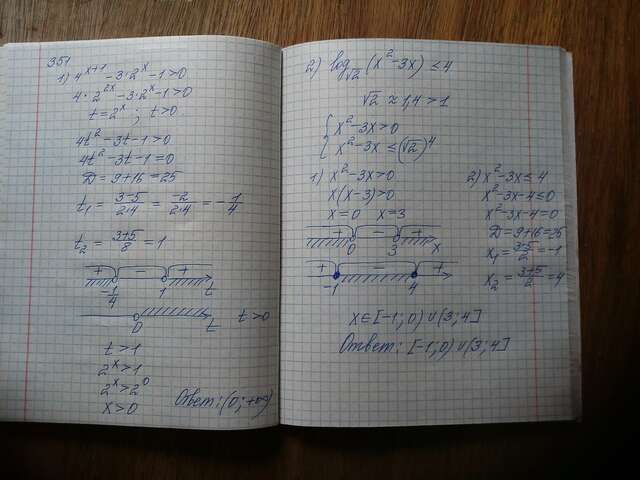 351
1) 4^{x+1} - 3·2^x - 1 > 0
4·2^{2x} - 3·2^x - 1 > 0
t = 2^x ; t > 0.
4t² - 3t - 1 > 0
4t² - 3t - 1 = 0
D = 9 + 16 = 25
t₁ = (3-5)/(2·4) = -2/(2·4) = -1/4
t₂ = (3+5)/8 = 1
+ - +
-1/4 1 t
0 t t > 0
t > 1
2^x > 1
2^x > 2^0
x > 0
Ответ: (0; +∞)
2) log_{√2} (x² - 3x) ≤ 4
√2 ≈ 1,4 > 1
{ x² - 3x > 0
{ x² - 3x ≤ (√2)^4
1) x² - 3x > 0
x(x - 3) > 0
x = 0 x = 3
+ - +
0 3 x
+ - +
-1 4
2) x² - 3x ≤ 4
x² - 3x - 4 ≤ 0
x² - 3x - 4 = 0
D = 9 + 16 = 25
x₁ = (3-5)/2 = -1
x₂ = (3+5)/2 = 4
x ∈ [-1; 0) ∪ (3; 4]
Ответ: [-1; 0) ∪ (3; 4]